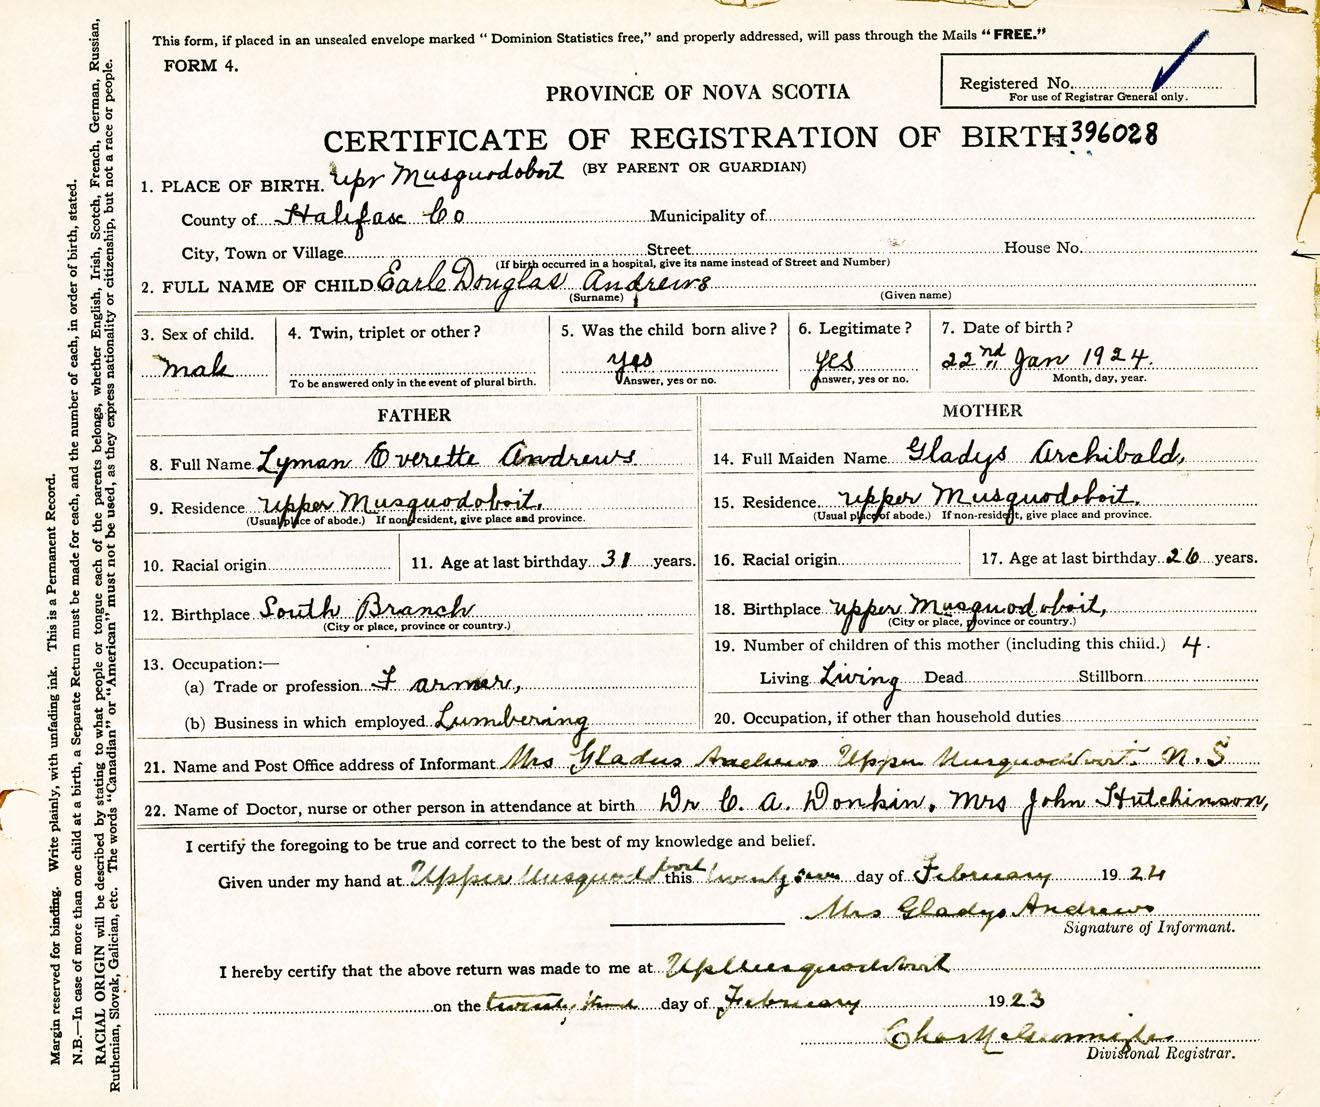 This form, if placed in an unsealed envelope marked “ Dominion Statistics free,” and properly addressed, will pass through the Mails “ FREE.”
FORM 4.
Registered No.
For use of Registrar General only.
PROVINCE OF NOVA SCOTIA
CERTIFICATE OF REGISTRATION OF BIRTH 396028
(BY PARENT OR GUARDIAN)
1. PLACE OF BIRTH. Upr Musquodoboit
County of Halifax Co Municipality of
City, Town or Village Street House No.
(If birth occurred in a hospital, give its name instead of Street and Number)
2. FULL NAME OF CHILD Earle Douglas Andrews
(Surname) (Given name)
3. Sex of child. 4. Twin, triplet or other ? 5. Was the child born alive ? 6. Legitimate ? 7. Date of birth ?
male yes yes 22nd Jan 1924.
To be answered only in the event of plural birth. Answer, yes or no. Answer, yes or no. Month, day, year.
FATHER MOTHER
8. Full Name Lyman Everette Andrews 14. Full Maiden Name Gladys Archibald,
9. Residence Upper Musquodoboit. 15. Residence upper Musquodoboit.
(Usual place of abode.) If nonresident, give place and province. (Usual place of abode.) If non-resident, give place and province.
10. Racial origin 11. Age at last birthday 31 years. 16. Racial origin 17. Age at last birthday 26 years.
12. Birthplace South Branch 18. Birthplace upper Musquodoboit,
(City or place, province or country.) (City or place, province or country.)
13. Occupation:— 19. Number of children of this mother (including this child.) 4.
(a) Trade or profession Farmer, Living Living Dead Stillborn
(b) Business in which employed Lumbering 20. Occupation, if other than household duties
21. Name and Post Office address of Informant Mrs Gladys Andrews Upper Musquodoboit N.S
22. Name of Doctor, nurse or other person in attendance at birth Dr C. A. Donkin. Mrs John Hutchinson,
I certify the foregoing to be true and correct to the best of my knowledge and belief.
Given under my hand at Upper Musquodoboit this twenty day of February 1924
Mrs Gladys Andrews
Signature of Informant.
I hereby certify that the above return was made to me at Up Musquodoboit
on the twenty day of February 1923
Divisional Registrar.
Margin reserved for binding. Write plainly, with unfading ink. This is a Permanent Record.
N.B.—In case of more than one child at a birth, a Separate Return must be made for each, and the number of each, in order of birth, stated.
RACIAL ORIGIN will be described by stating to what people or tongue each of the parents belongs, whether English, Irish, Scotch, French, German, Russian,
Ruthenian, Slovak, Galician, etc. The words “Canadian” or “American” must not be used, as they express nationality or citizenship, but not a race or people.